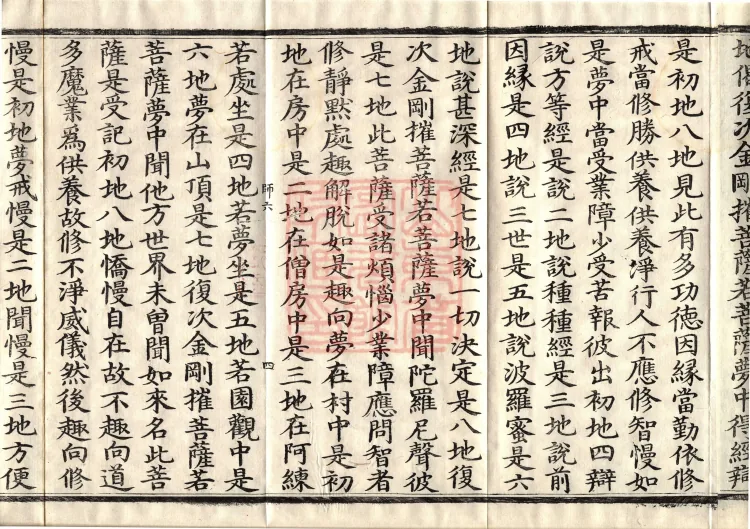 地修復次金剛摧菩薩若菩薩夢中得經辯
是初地八地見此有多功德因緣當勤依修
戒當修勝供養供養淨行人不應修智慢如
是夢中當受業障少受苦報彼出初地四辯
說方等經是說二地說種種經是三地說前
因緣是四地說三世是五地說波羅蜜是六
地說甚深經是七地說一切決定是八地復
次金剛摧菩薩若菩薩夢中聞陀羅尼聲彼
是七地此菩薩受諸煩惱少業障應問智者
修靜默處趣解脫如是趣向夢在村中是初
地在房中是二地在僧房中是三地在阿練
師六
四
若處坐是四地若夢坐是五地若園觀中是
六地夢在山頂是七地復次金剛摧菩薩若
菩薩夢中聞他方世界未曾聞如來名此菩
薩是受記初地八地憍慢自在故不趣向道
多魔業為供養故修不淨威儀然後趣向修
慢是初地夢戒慢是二地聞慢是三地方便